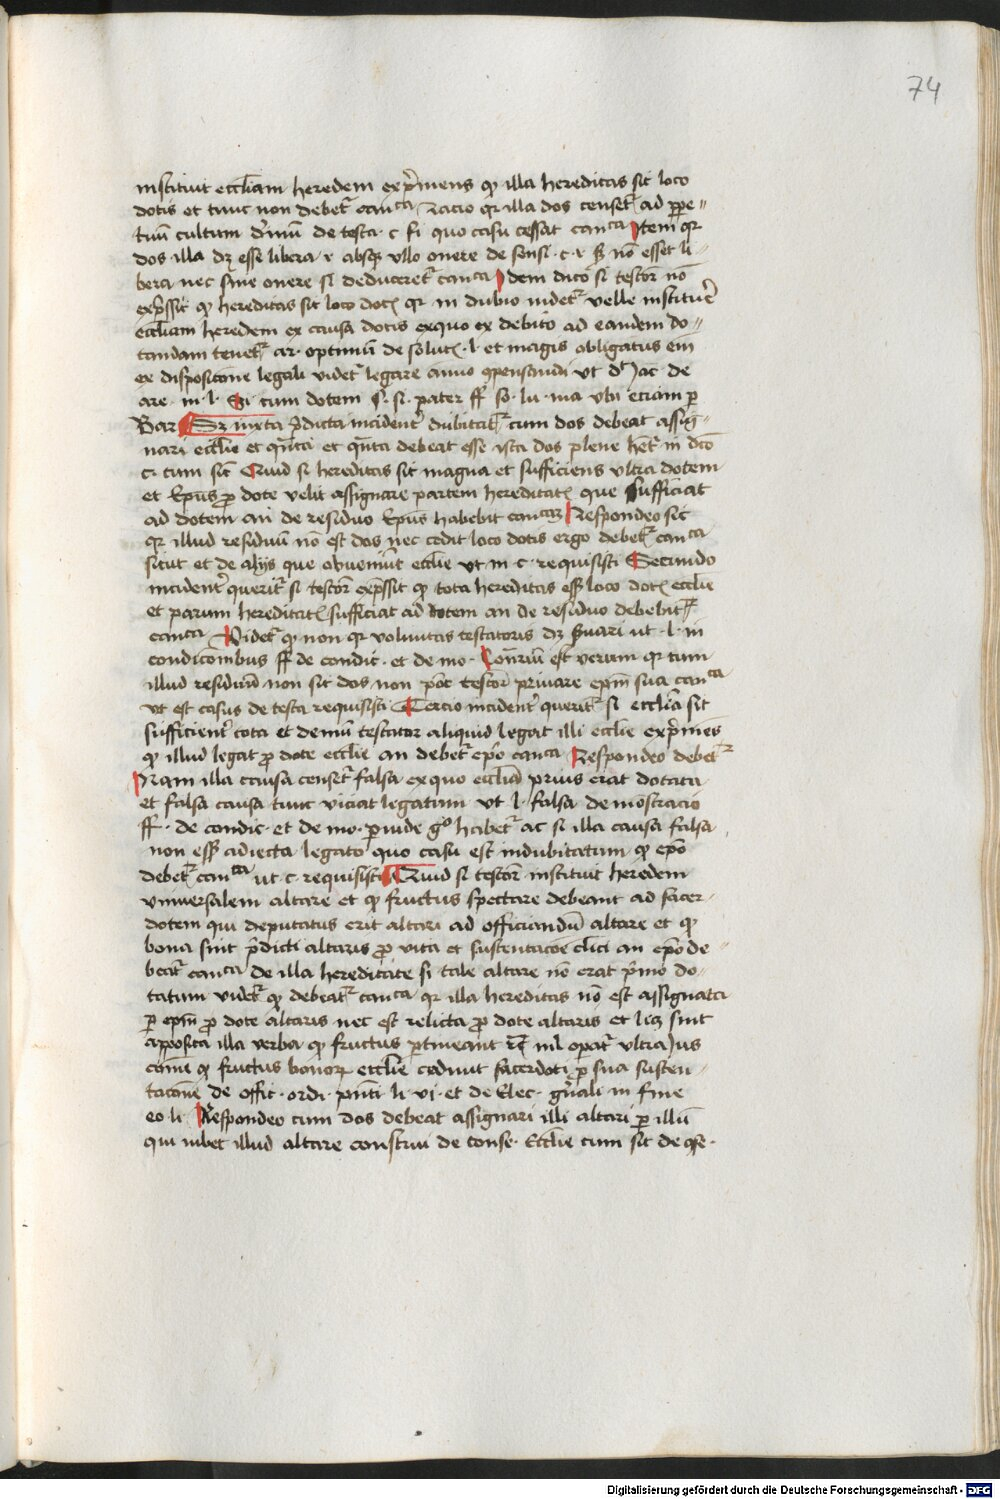 74
instituit eccliam heredem exp̃mens qꝫ illa hereditas sit loco
dotis et tunc non debet᷑ canᶜᵃ Racio qr illa dos censet᷑ ad ꝑpe〃
tuũ cultum diuinũ de testa · c · fi · quo casu cessat canᶜᵃ Item qr
dos illa dꝫ esse libera · r absqꝫ vllo onere de sensi · c · r · sꝫ nõ esset li-
bera nec sine onere si deduceret᷑ canᶜᵃ Idem dico si testor nõ
exp̃ssit qꝫ hereditas sit loco dotꝭ qr in dubio videt᷑ velle instituẽ
eccliam heredem ex causa dotis exquo ex debito ad eandem do〃
tandam tenet᷑ ar · optimũ de solutꝭ · l · et magis obligatus em
ex dispositone legali videt᷑ legare animo ꝯpensandi vt d᷑ Jac · de
are · in · l · Si cum dotem §. si · pater ff so · lu · ma vbi eciam ꝑ
Bar Sꝫ iuxta p̃dicta incident᷑ dubitat᷑ cum dos debeat assig-
nari ecclie et qñta et qñta debeat esse ista dos plene het᷑ in dco
c · cum sic̃ Quid si hereditas sit magna et sufficiens vltra dotem
et ep̃us ꝓ dote velit assignare partem hereditatꝭ que sufficiat
ad dotem an de residuo ep̃us habebit canᶜᵃꝫ Respondeo sic
qr illud residuũ nõ est dos nec cedit loco dotis ergo debet᷑ canᶜᵃ
sicut et de alijs que obueniũt ecclie vt in · c · requisisti Secundo
incident᷑ querit᷑ si testor̃ exp̃ssit qꝫ tota hereditas esst̃ loco dotꝭ ecclie
et parum hereditatꝭ sufficiat ad dotem an de residuo debebit᷑
canᶜᵃ Videt᷑ qꝫ non qr voluntas testatoris dꝫ s̃uari ut · l · in
condicõnibus ff de condic · et de mo · Cont̃riũ est verum qr cum
illud residuũ non sit dos non põt testor̃ priuare ep̃m sua canᶜᵃ
vt est casus de testa requisisti Tercio incident᷑ querit᷑ si ecclia sit
sufficient᷑ dota et demũ testator aliquid legat illi ecclie exp̃mẽs
qꝫ illud legat ꝓ dote ecclie an debet᷑ ep̃o canᶜᵃ Respondeo debet᷑
Nam illa causa censet᷑ falsa exquo ecclia prius erat dotata
et falsa causa tunc viciat legatum vt l · falsa demõstracio
ff · de condic · et de mo · ꝑinde gº habet᷑ ac si illa causa falsa
non esst̃ adiecta legato quo casu est indubitatum qꝫ ep̃o
debet᷑ canᶜᵃ ut · c · requisisti Quid si testor̃ instituit heredem
vniuersalem altare et qꝫ fructus spectare debeant ad sacer-
dotem qui deputatus erit altari ad officiandũ altare et qꝫ
bona sint p̃dicti altaris ꝓ vita et sustentacõe clici an ep̃o de〃
beat᷑ canᶜᵃ de illa hereditate si tale altare nõ erat p̃mo do〃
tatum videt᷑ qꝫ debeat᷑ canᶜᵃ qr illa hereditas nõ est assignata
ꝑ ep̃m ꝓ dote altaris nec est relicta ꝓ dote altaris et licꝫ sint
apposita illa verba qꝫ fructus ꝑtineant rc̃ nil oꝑat᷑ vltra Jus
cõme qꝫ fructus bonoꝝ ecclie cedunt sacerdoti ꝓ sua susten〃
tacõne de offic · ordi · pñti · li · vi · et de Elec · gñali in fine
eo · li · Respondeo cum dos debeat assignari illi altari ꝑ illũ
qui iubet illud altare construi de conse · Ecclie cum sit de ꝯse ·
Digitalisierung gefördert durch die Deutsche Forschungsgemeinschaft - DFG